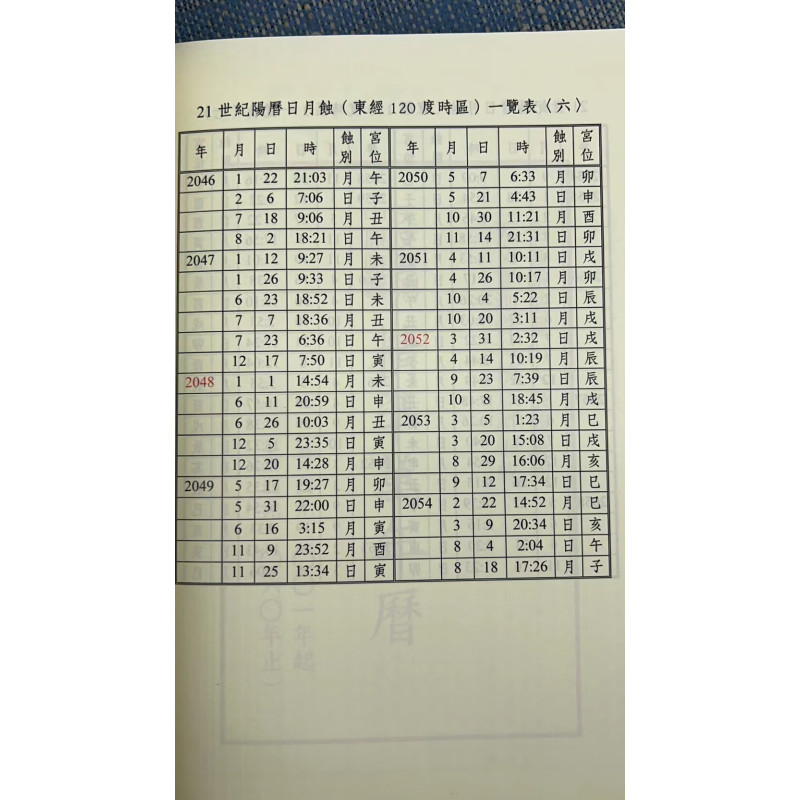 21世紀陽曆日月蝕（東經120度時區）一覽表〈六〉
年 月 日 時 蝕別 宮位 年 月 日 時 蝕別 宮位
2046 1 22 21:03 月 午 2050 5 7 6:33 月 卯
2 6 7:06 日 子 5 21 4:43 日 申
7 18 9:06 月 丑 10 30 11:21 月 酉
8 2 18:21 日 午 11 14 21:31 日 卯
2047 1 12 9:27 月 未 2051 4 11 10:11 日 戌
1 26 9:33 日 子 4 26 10:17 月 卯
6 23 18:52 日 未 10 4 5:22 日 辰
7 7 18:36 月 丑 10 20 3:11 月 戌
7 23 6:36 日 午 2052 3 31 2:32 日 戌
12 17 7:50 日 寅 4 14 10:19 月 辰
2048 1 1 14:54 月 未 9 23 7:39 日 辰
6 11 20:59 日 申 10 8 18:45 月 戌
6 26 10:03 月 丑 2053 3 5 1:23 月 巳
12 5 23:35 日 寅 3 20 15:08 日 戌
12 20 14:28 月 申 8 29 16:06 月 亥
2049 5 17 19:27 月 卯 9 12 17:34 日 巳
5 31 22:00 日 申 2054 2 22 14:52 月 巳
6 16 3:15 月 寅 3 9 20:34 日 亥
11 9 23:52 月 酉 8 4 2:04 日 午
11 25 13:34 日 寅 8 18 17:26 月 子